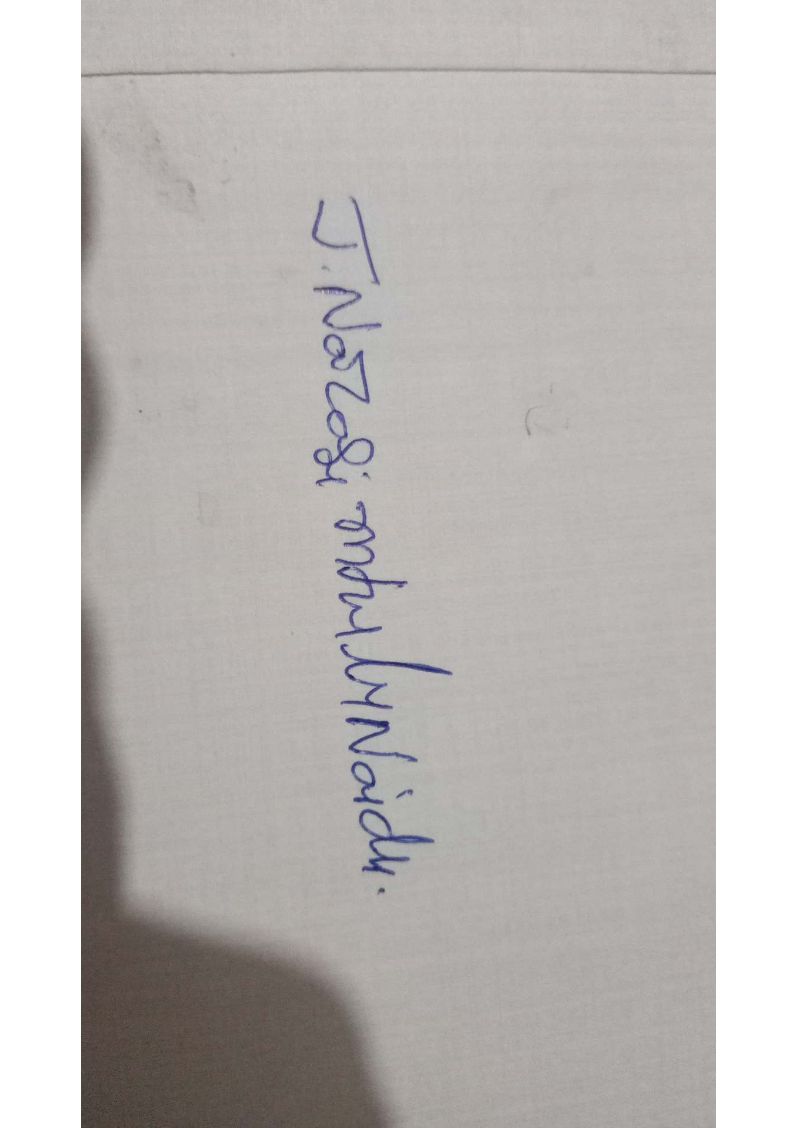 J. Narasimhulu Naidu.